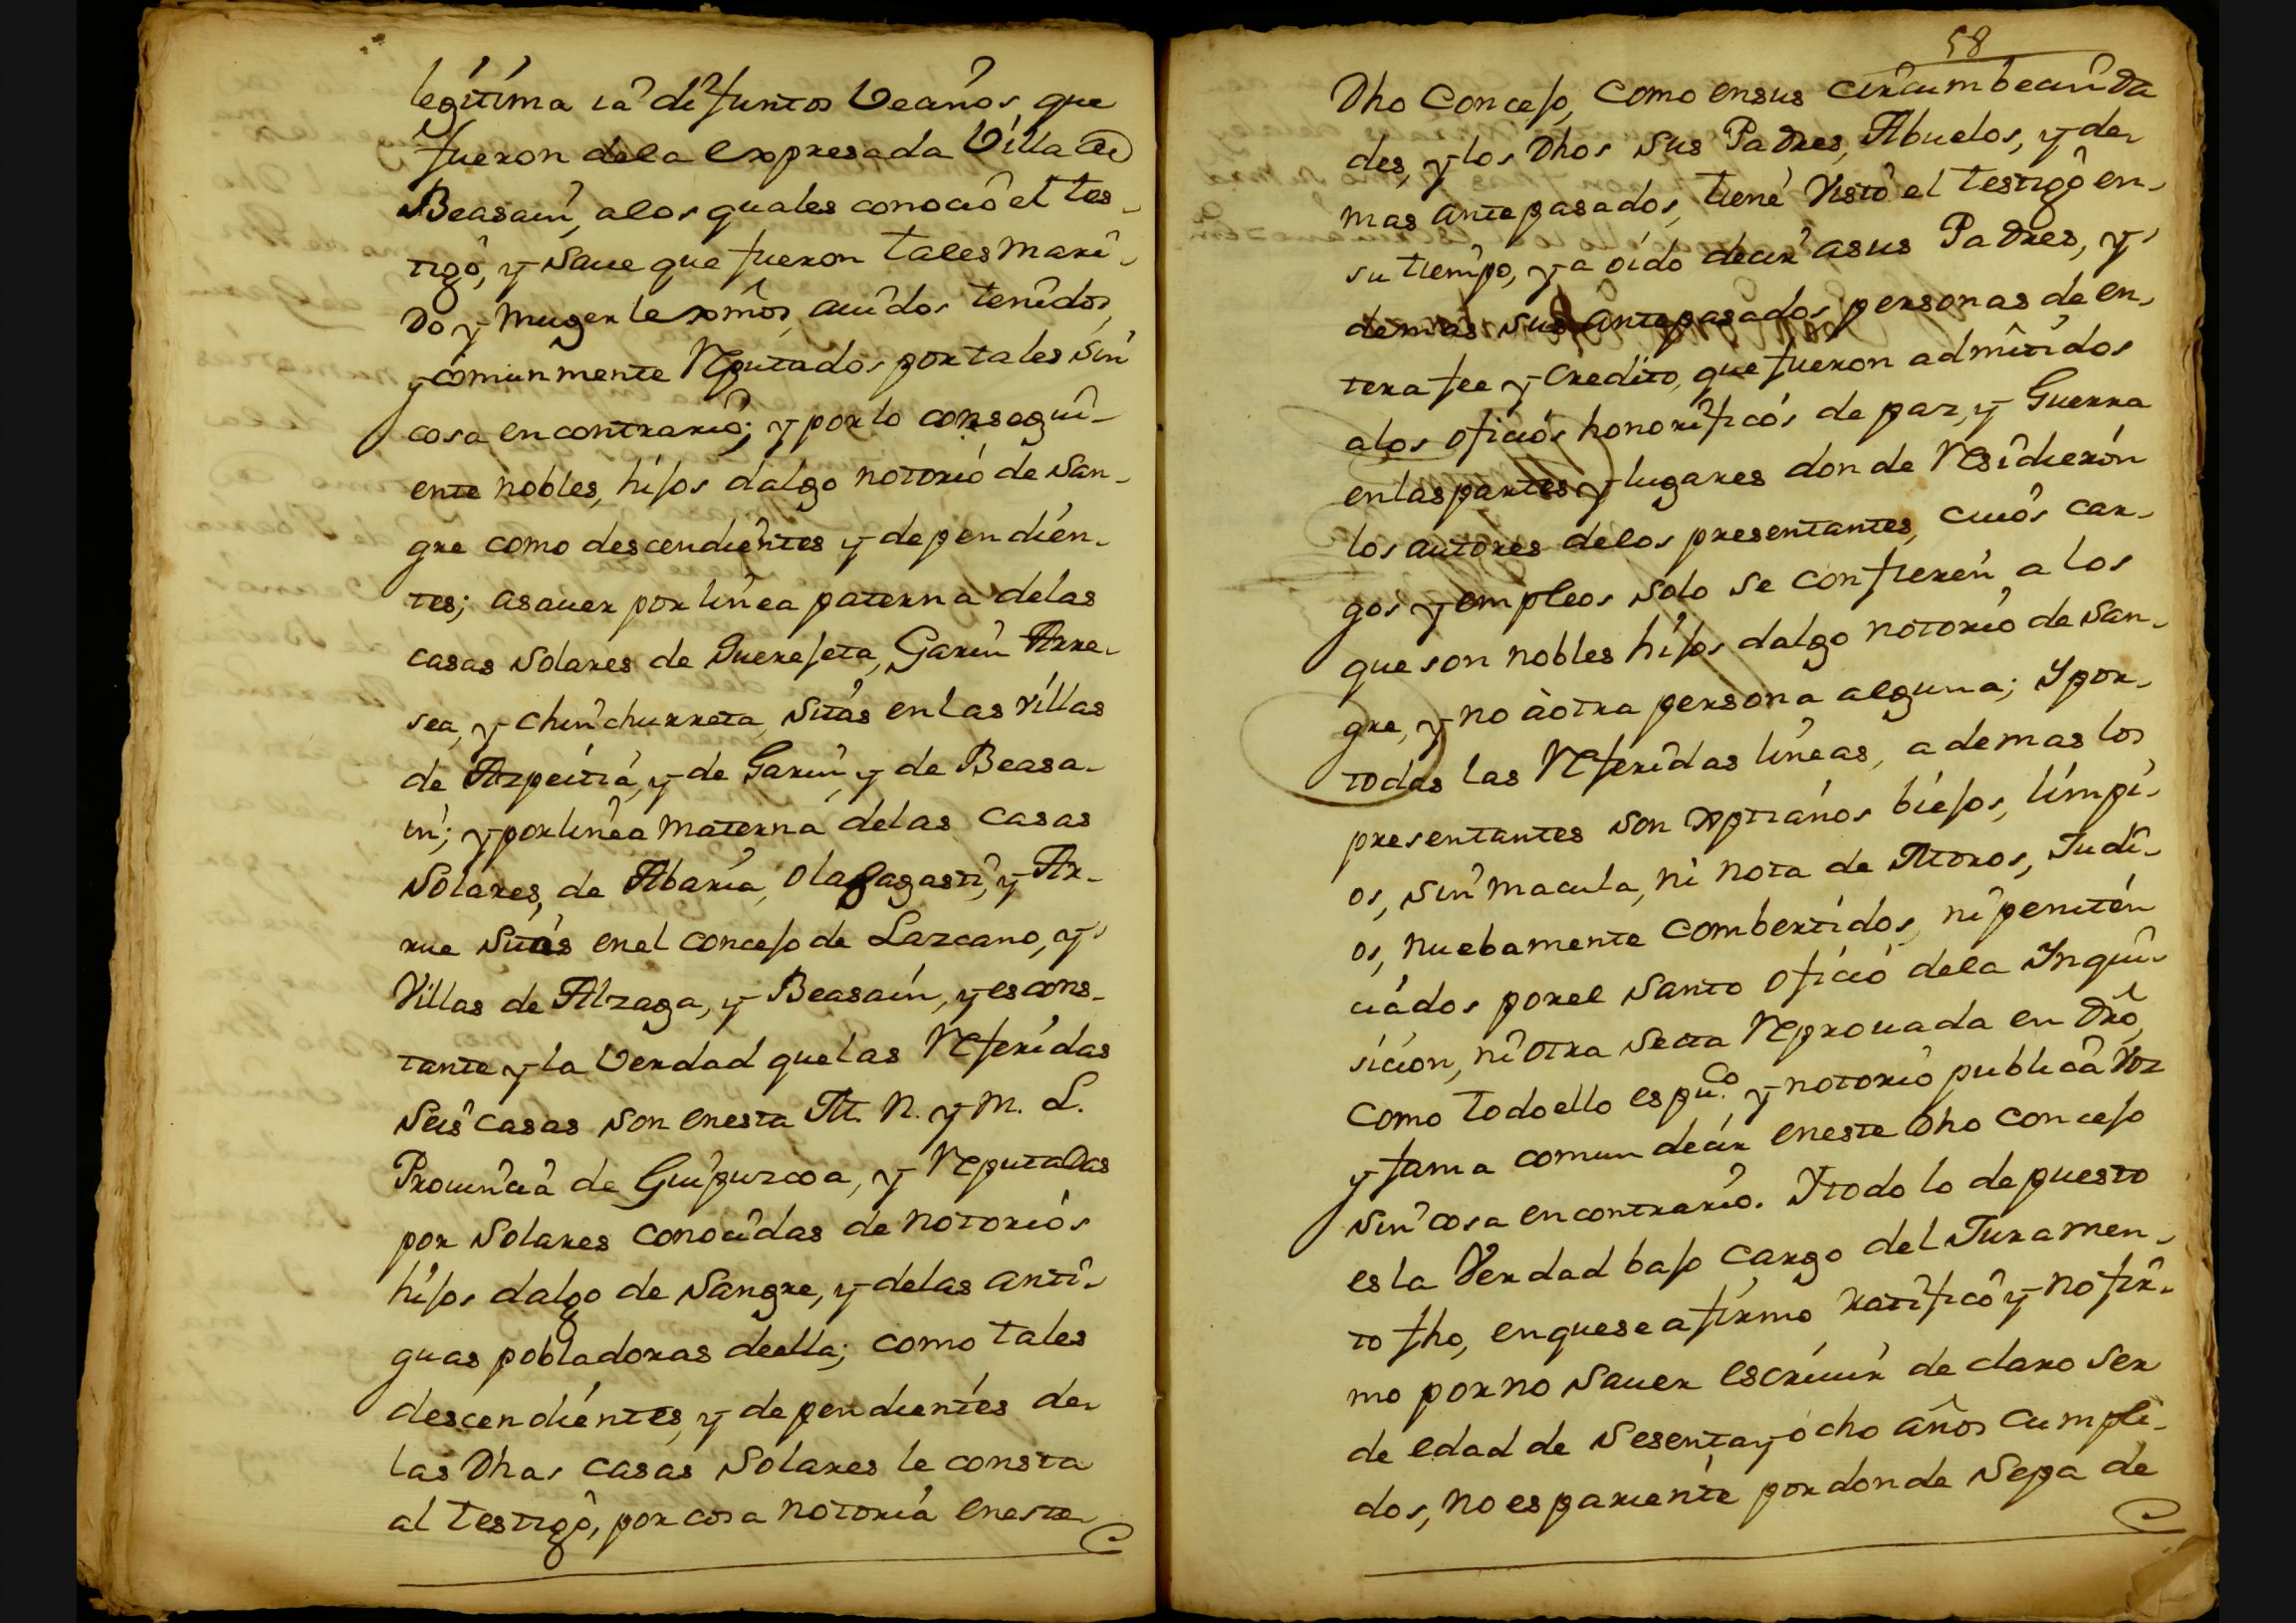 legitima ia difuntos Veanos que
fueron dela expresada Villa de
Beasain, alos quales conocio el tes-
tigo, y saue que fueron tales mari-
do y muger lexmos, auidos tenidos,
y comunmente Reputados por tales sin
cosa en contrario; y por lo consegui-
ente nobles, hijos dalgo notorio de san-
gre como descendientes y dependien-
tes; asauer por linea paterna delas
casas solares de Querejeta, Garin Arre-
sea, y chinchurreta, sitas en las villas
de Azpeitia, y de Garin, y de Beasa-
in; y por linea materna delas casas
solares, de Abaria, Olagagasti, y Ar-
rue sitas en el concejo de Lazcano, y
Villas de Alzaga, y Beasain, y es cons-
tante y la Verdad que las Referidas
seis casas son en esta M. N. y M. L.
Prouincia de Guipuzcoa, y Reputadas
por solares conocidas de notorios
hijos dalgo de sangre, y delas anti-
guas pobladoras deella; como tales
descendientes, y dependientes de
las Dhas casas solares le consta
al testigo, por cosa notoria en este
58
Dho Concejo, como en sus circumbecinda
des, y los Dhos sus Padres, Abuelos, y de
mas antepasados, tiene visto el testigo en
su tiempo, y a oido decir a sus Padres, y
demas sus antepasados personas de en-
tera fee y credito, que fueron admitidos
alos oficios honorificos de paz, y Guerra
en las partes y lugares donde Residieron
los autores delos presentantes, cuios car-
gos y empleos solo se confieren a los
que son nobles hijos dalgo notorio de san-
gre, y no à otra persona alguna; y por
todas las Referidas lineas, ademas los
presentantes son xptianos biejos, limpi-
os, sin macula, ni nota de Moros, Judi-
os, nuebamente combertidos, ni peniten
ciados por el santo oficio dela Inqui-
sicion, ni otra secta Reprouada en Dro,
como todo ello es pu.co y notorio publica voz
y fama comun decir en este Dho concejo
sin cosa en contrario. Y todo lo depuesto
es la Verdad bajo cargo del Juramen-
to fho, en que se afirmo ratifico y no fir-
mo por no sauer escriuir declaro ser
de edad de sesenta y ocho años cumpli-
dos, no es pariente por donde sepa de